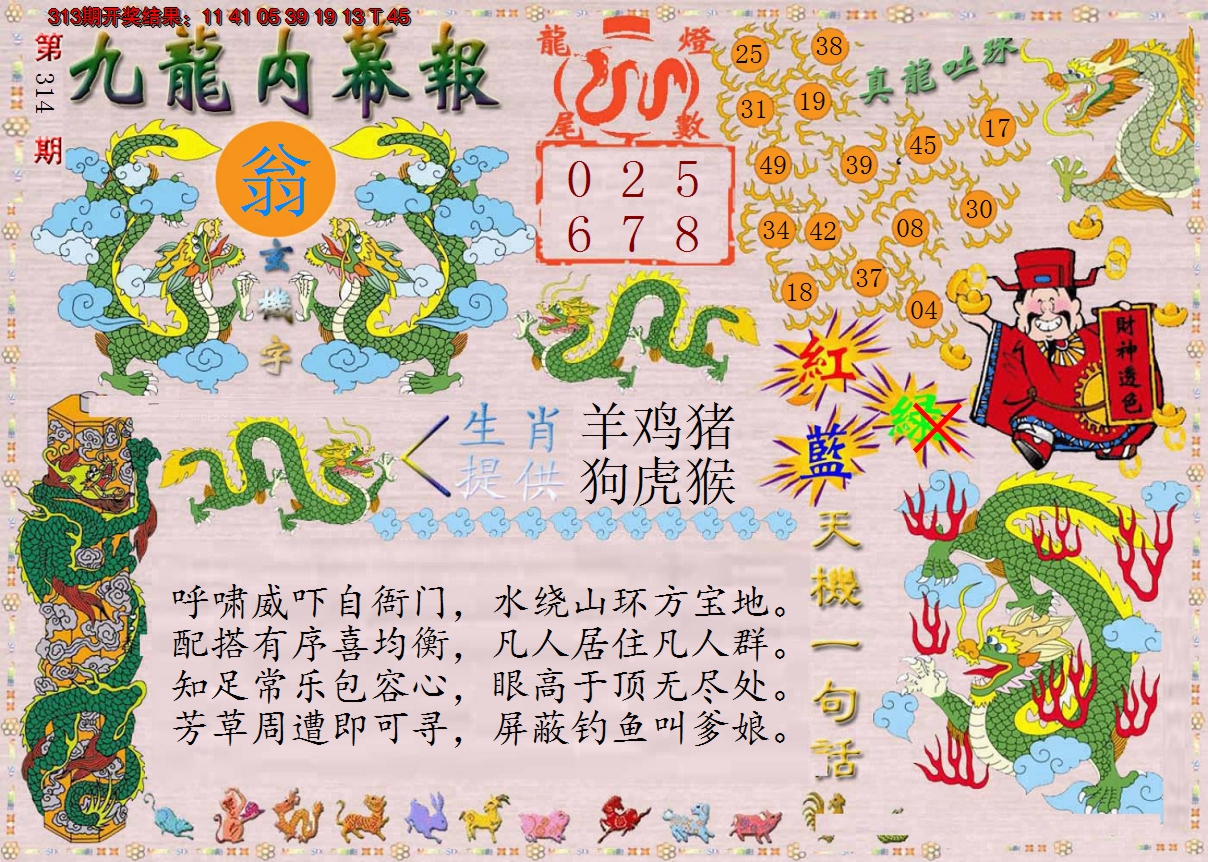 313期开奖结果：11 41 05 39 19 13 T 45
第314期
九龍内幕報
翁
玄機字
龍燈
尾數
0 2 5
6 7 8
真龍吐珠
25 38
31 19
45 17
49 39
30
34 42 08
37
18
04
財神透色
紅
綠
藍
生肖 羊鸡猪
提供 狗虎猴
天機一句話
呼啸威吓自衙门，水绕山环方宝地。
配搭有序喜均衡，凡人居住凡人群。
知足常乐包容心，眼高于顶无尽处。
芳草周遭即可寻，屏蔽钓鱼叫爹娘。